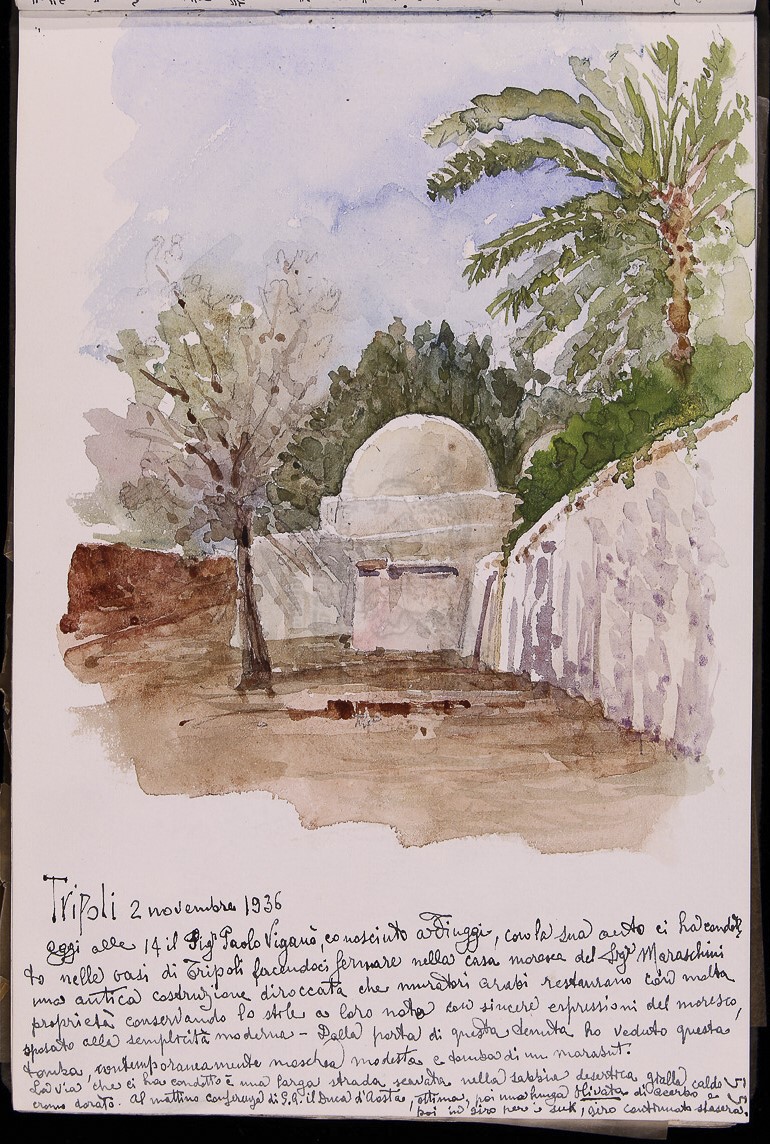 Tripoli 2 novembre 1936
oggi alle 14 il Sigr Paolo Viganò, conosciuto a Fiuggi, con la sua auto ci ha condot
to nelle oasi di Tripoli facendoci fermare nella casa moresca del Sigr Maraschini
una antica costruzione diroccata che muratori arabi restaurano con molta
proprietà conservando lo stile a loro noto con sincere espressioni del moresco,
sposato alla semplicità moderna - Dalla porta di questa tenuta ho veduto questa
tomba, contemporaneamente moschea modesta e tomba di un marabut.
La via che ci ha condotto è una larga strada scavata nella sabbia desertica gialla, caldo
cromo dorato. Al mattino conferenza di S.A. il Duca d'Aosta, ottima, poi una lunga di Acerbo e
poi in giro per i suk, giro continuato stasera.